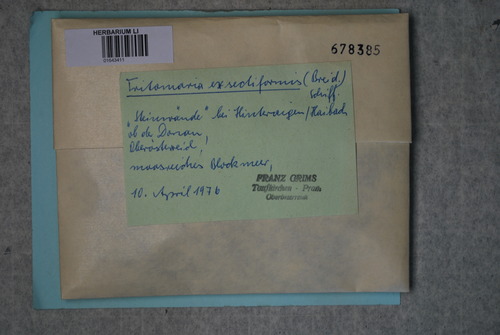 HERBARIUM LI
678385
Tritomaria exsectiformis (Breidl.)
Schiff.
"Steinwände" bei Hinteraigen / Haibach
ob der Donau,
Oberösterreich,
moosreiches Blockmeer,
10. April 1976
FRANZ GRIMS
Taufkirchen - Pram
Oberösterreich